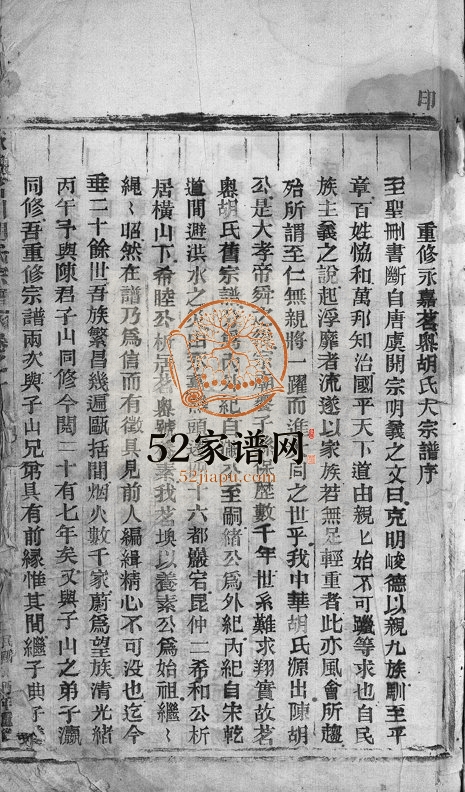 印
重修永嘉茗㠘胡氏大宗譜序
至聖刪書斷自唐虞開宗明義之文曰克明峻德以親九族馴至平
章百姓恊和萬邦知治國平天下道由親乚始不可躐等求也自民
族主義之說起浮靡者流遂以家族若無足輕重者此亦風會所趨
殆所謂至仁無親將一躍而進 同之世乎我中華胡氏源出陳胡
公是大孝帝舜之 歷數千年世系難求翔實故茗
㠘胡氏舊宗譜分爲內外紀自 公至嗣緒公爲外紀內紀自宋乾
道間避洪水之災由 頭 十六都巖宕昆仲二希和公析
居橫山下希睦公析居茗㠘號 素我茗㙪以養素公爲始祖繼〻
繩〻昭然在譜乃爲信而有徵具見前人編緝精心不可沒也迄今
垂二十餘世吾族繁昌幾遍甌括間烟火數千家蔚爲望族清光緒
丙午予與陳君子山同修今閱二十有七年矣又與子山之弟子瀛
同修吾重修宗譜兩次與子山兄弟具有前緣惟其間繼子典
52家谱网
52jiapu.com